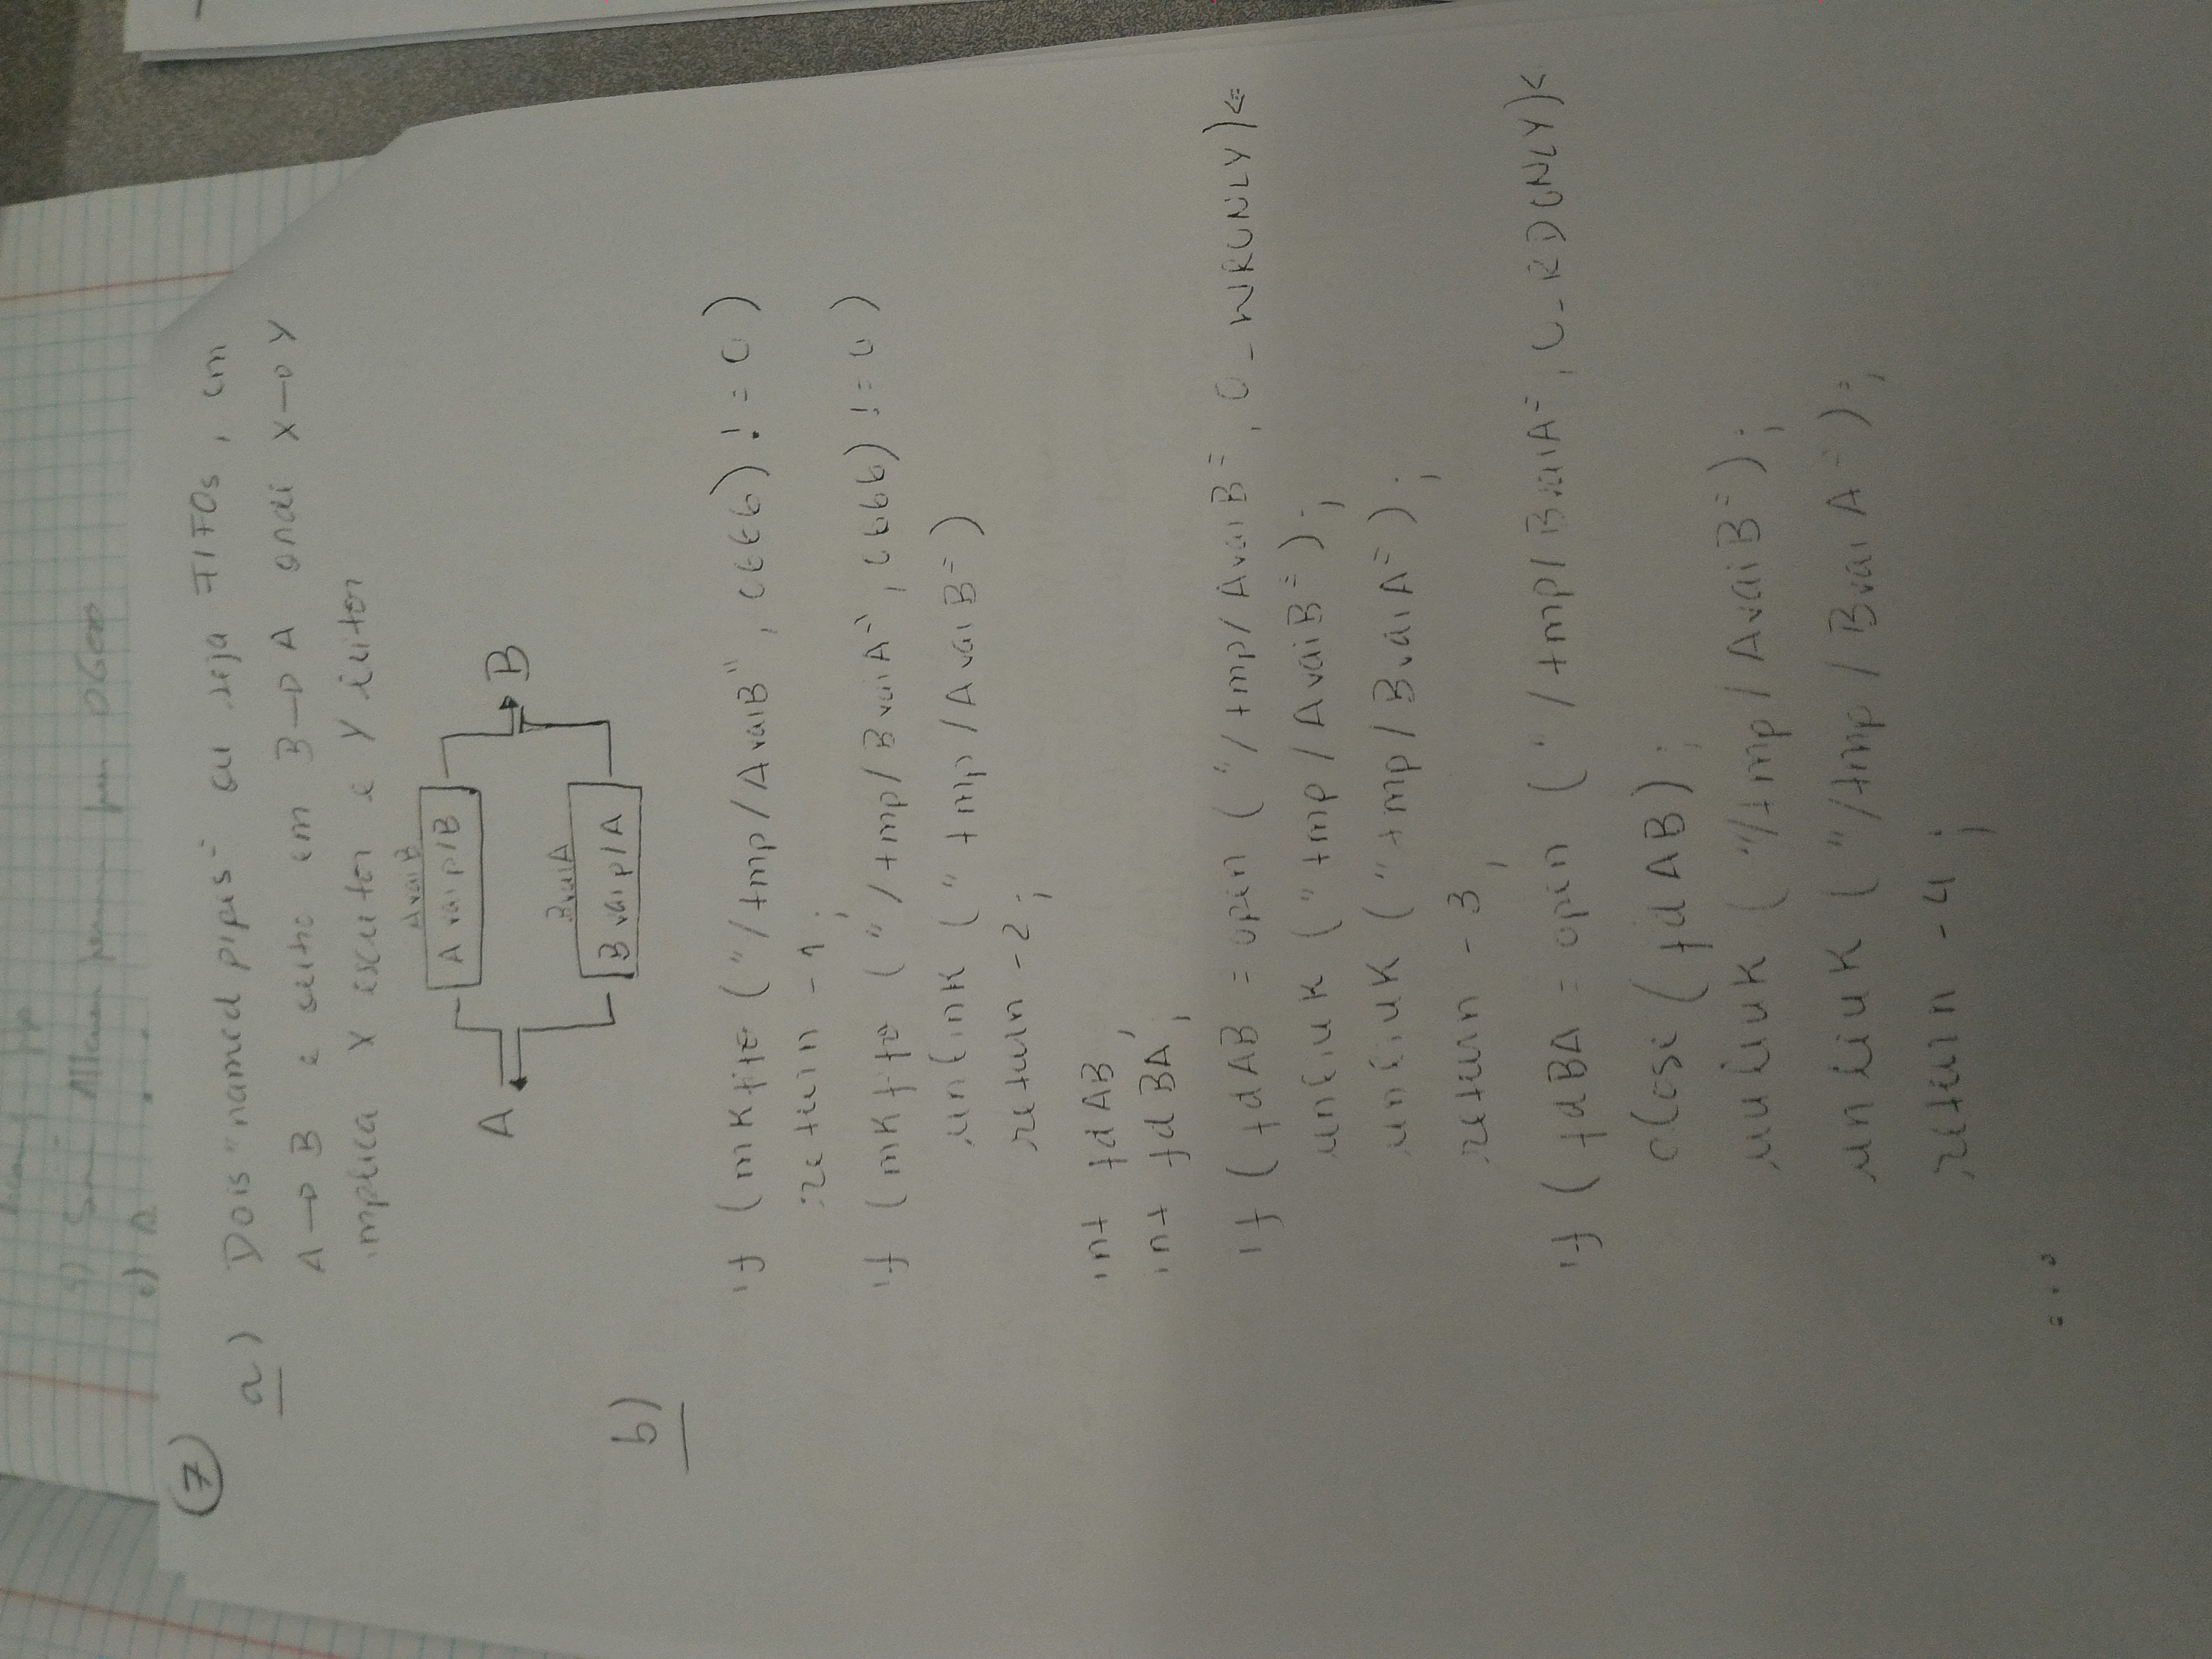 5) Sim
c)
7
a) Dois "named pipes" ou seja FIFOs, um
A → B e outro em B → A onde X → Y
implica X escritor e Y leitor
AvaiB
A vai p/B
A B
BvaiA
B vai p/A
b)
if (mkfifo ("/tmp/AvaiB", 0666) != 0)
return -1;
if (mkfifo ("/tmp/BvaiA", 0666) != 0)
unlink ("tmp/AvaiB")
return -2;
int fdAB;
int fdBA;
if (fdAB = open ("/tmp/AvaiB", O_WRONLY)<=
unlink ("tmp/AvaiB");
unlink ("tmp/BvaiA");
return -3;
if (fdBA = open ("/tmp/BvaiA", O_RDONLY)<
close (fdAB);
unlink ("/tmp/AvaiB");
unlink ("/tmp/BvaiA");
return -4;
...